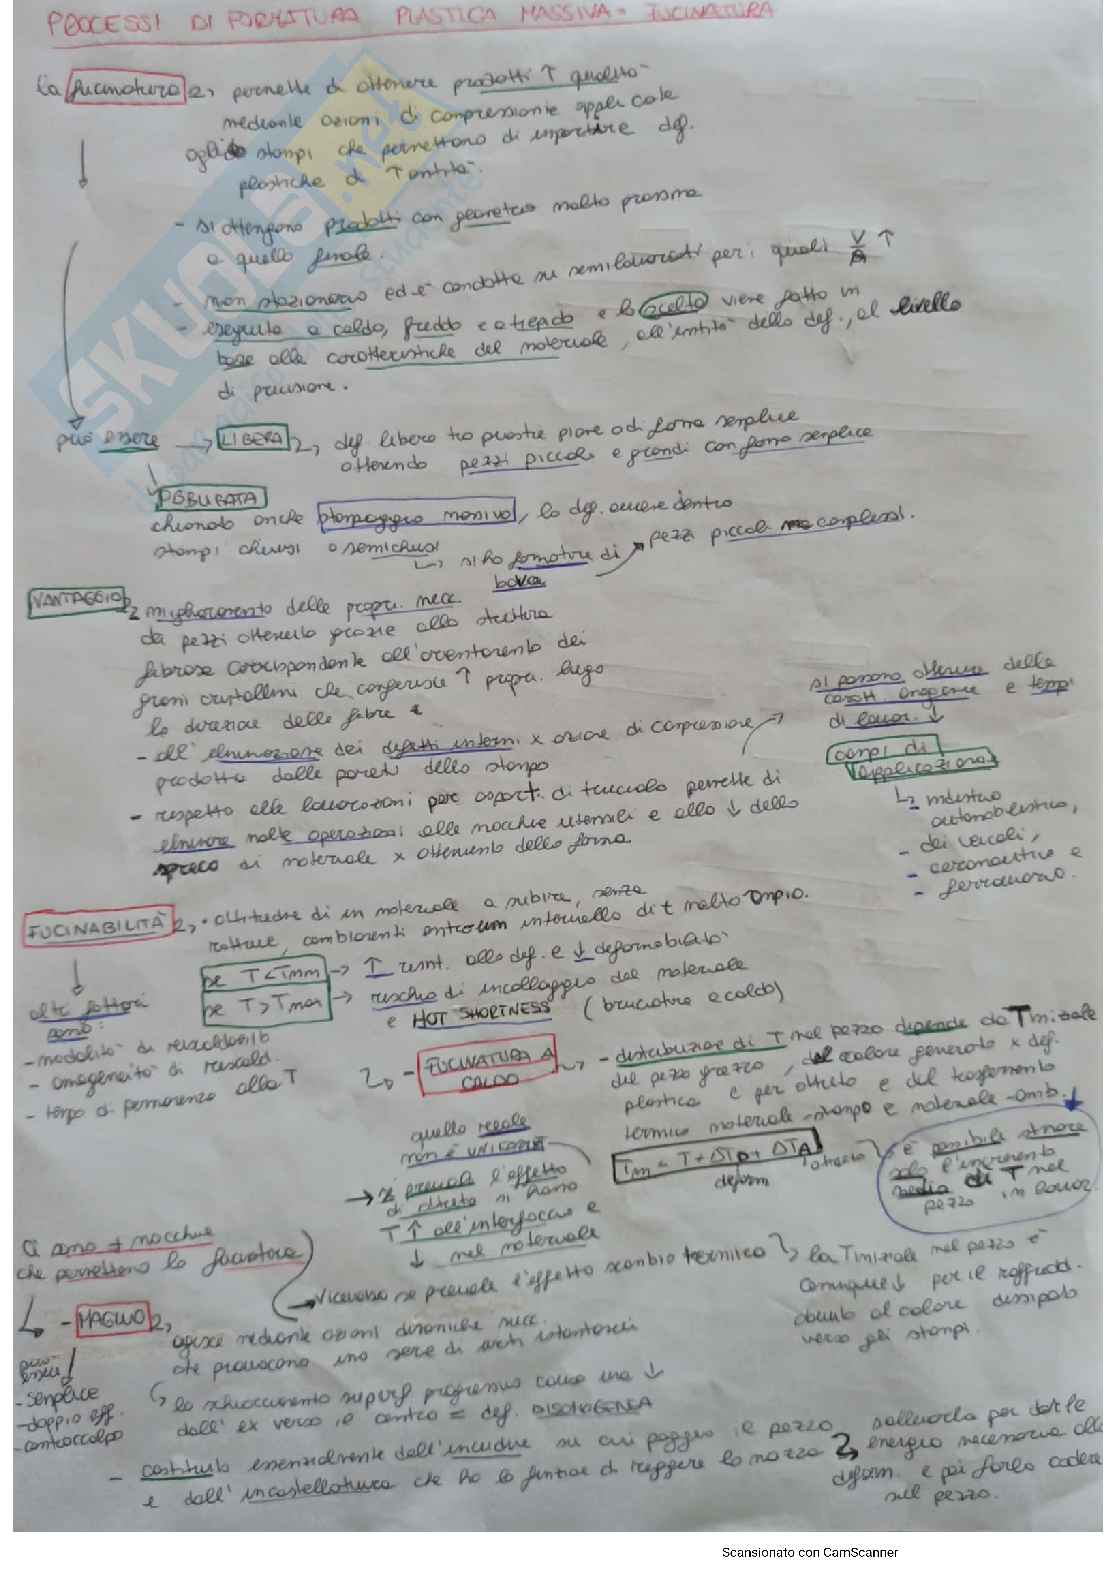 PROCESSI DI FORMATURA PLASTICA MASSIVA = FUCINATURA
la fucinatura permette di ottenere prodotti ↑ qualità
mediante azioni di compressione applicate
agli stampi che permettono di impartire def.
plastiche di ↑ entità.
- si ottengono prodotti con geometria molto prossima
a quella finale.
- non stazionario ed è condotta su semilavorati per i quali V/A ↑
- eseguita a caldo, freddo e a tiepido e la scelta viene fatta in
base alle caratteristiche del materiale, all'entità della def., al livello
di precisione.
può essere → LIBERA def libera tra piastre piane o di forma semplice
ottenendo pezzi piccoli e grandi con forma semplice
chiamata anche stampaggio massivo, la def. avviene dentro
stampi chiusi o semichiusi
↳ si ha formatura di bava → pezzi piccoli ma complessi.
VANTAGGIO miglioramento delle propr. mecc.
dei pezzi ottenuto grazie alla struttura
fibrosa corrispondente all'orientamento dei
grani cristallini che conferisce ↑ propr. lungo
la direzione delle fibre e
- all'eliminazione dei difetti interni x azione di compressione
prodotta dalle pareti dello stampo
- rispetto alle lavorazioni per asport. di truciolo permette di
eliminare molte operazioni alle macchine utensili e alla ↓ dello
spreco di materiale x ottenimento della forma.
si possono ottenere delle
caratt. omogenee e tempi
di lavor. ↓
campi di
applicazione
↳ industria
automobilistica,
- dei veicoli,
- aeronautica e
- ferroviario.
FUCINABILITÀ • attitudine di un materiale a subire, senza
rotture, cambiamenti entro un intervallo di t molto ampio.
se T < Tmin → ↑ resist. alla def. e ↓ deformabilità
se T > Tmax → rischio di incollaggio del materiale
e HOT SHORTNESS (bruciatura a caldo)
altri fattori
sono:
- modalità di
- omogeneità di riscald.
- tempo di permanenza alla T
- FUCINATURA A
CALDO
- distribuzione di T nel pezzo dipende da T iniziale
del pezzo grezzo, dal calore generato x def.
plastica e per attrito e del trasferimento
termico materiale-stampo e materiale-amb.
Tm = T + ΔTD + ΔTA
deform attrito
è possibile stimare
solo l'incremento
medio di T nel
pezzo in lavor.
quella reale
non è UNIFORME
→ se prevale l'effetto
di attrito si hanno
T ↑ all'interfaccia e
↓ nel materiale
→ Viceversa se prevale l'effetto scambio termico
la T iniziale nel pezzo è
comunque ↓ per il raffredd.
dovuto al calore dissipato
verso gli stampi.
Ci sono ≠ macchine
che permettono la fucinatura
↳ - MAGLIO
agisce mediante azioni dinamiche succ.
che provocano una serie di urti istantanei
può
essere
- semplice
- doppio eff.
- contraccolpo
lo schiacciamento superf progressivo come una ↓
dall'ex verso il centro = def. DISOMOGENEA
- costituito essenzialmente dall'incudine su cui poggia il pezzo
e dall'incastellatura che ha la funzione di reggere la mazza
sollevarla per darle
energia necessaria alla
deform. e poi farla cadere
sul pezzo.
Scansionato con CamScanner